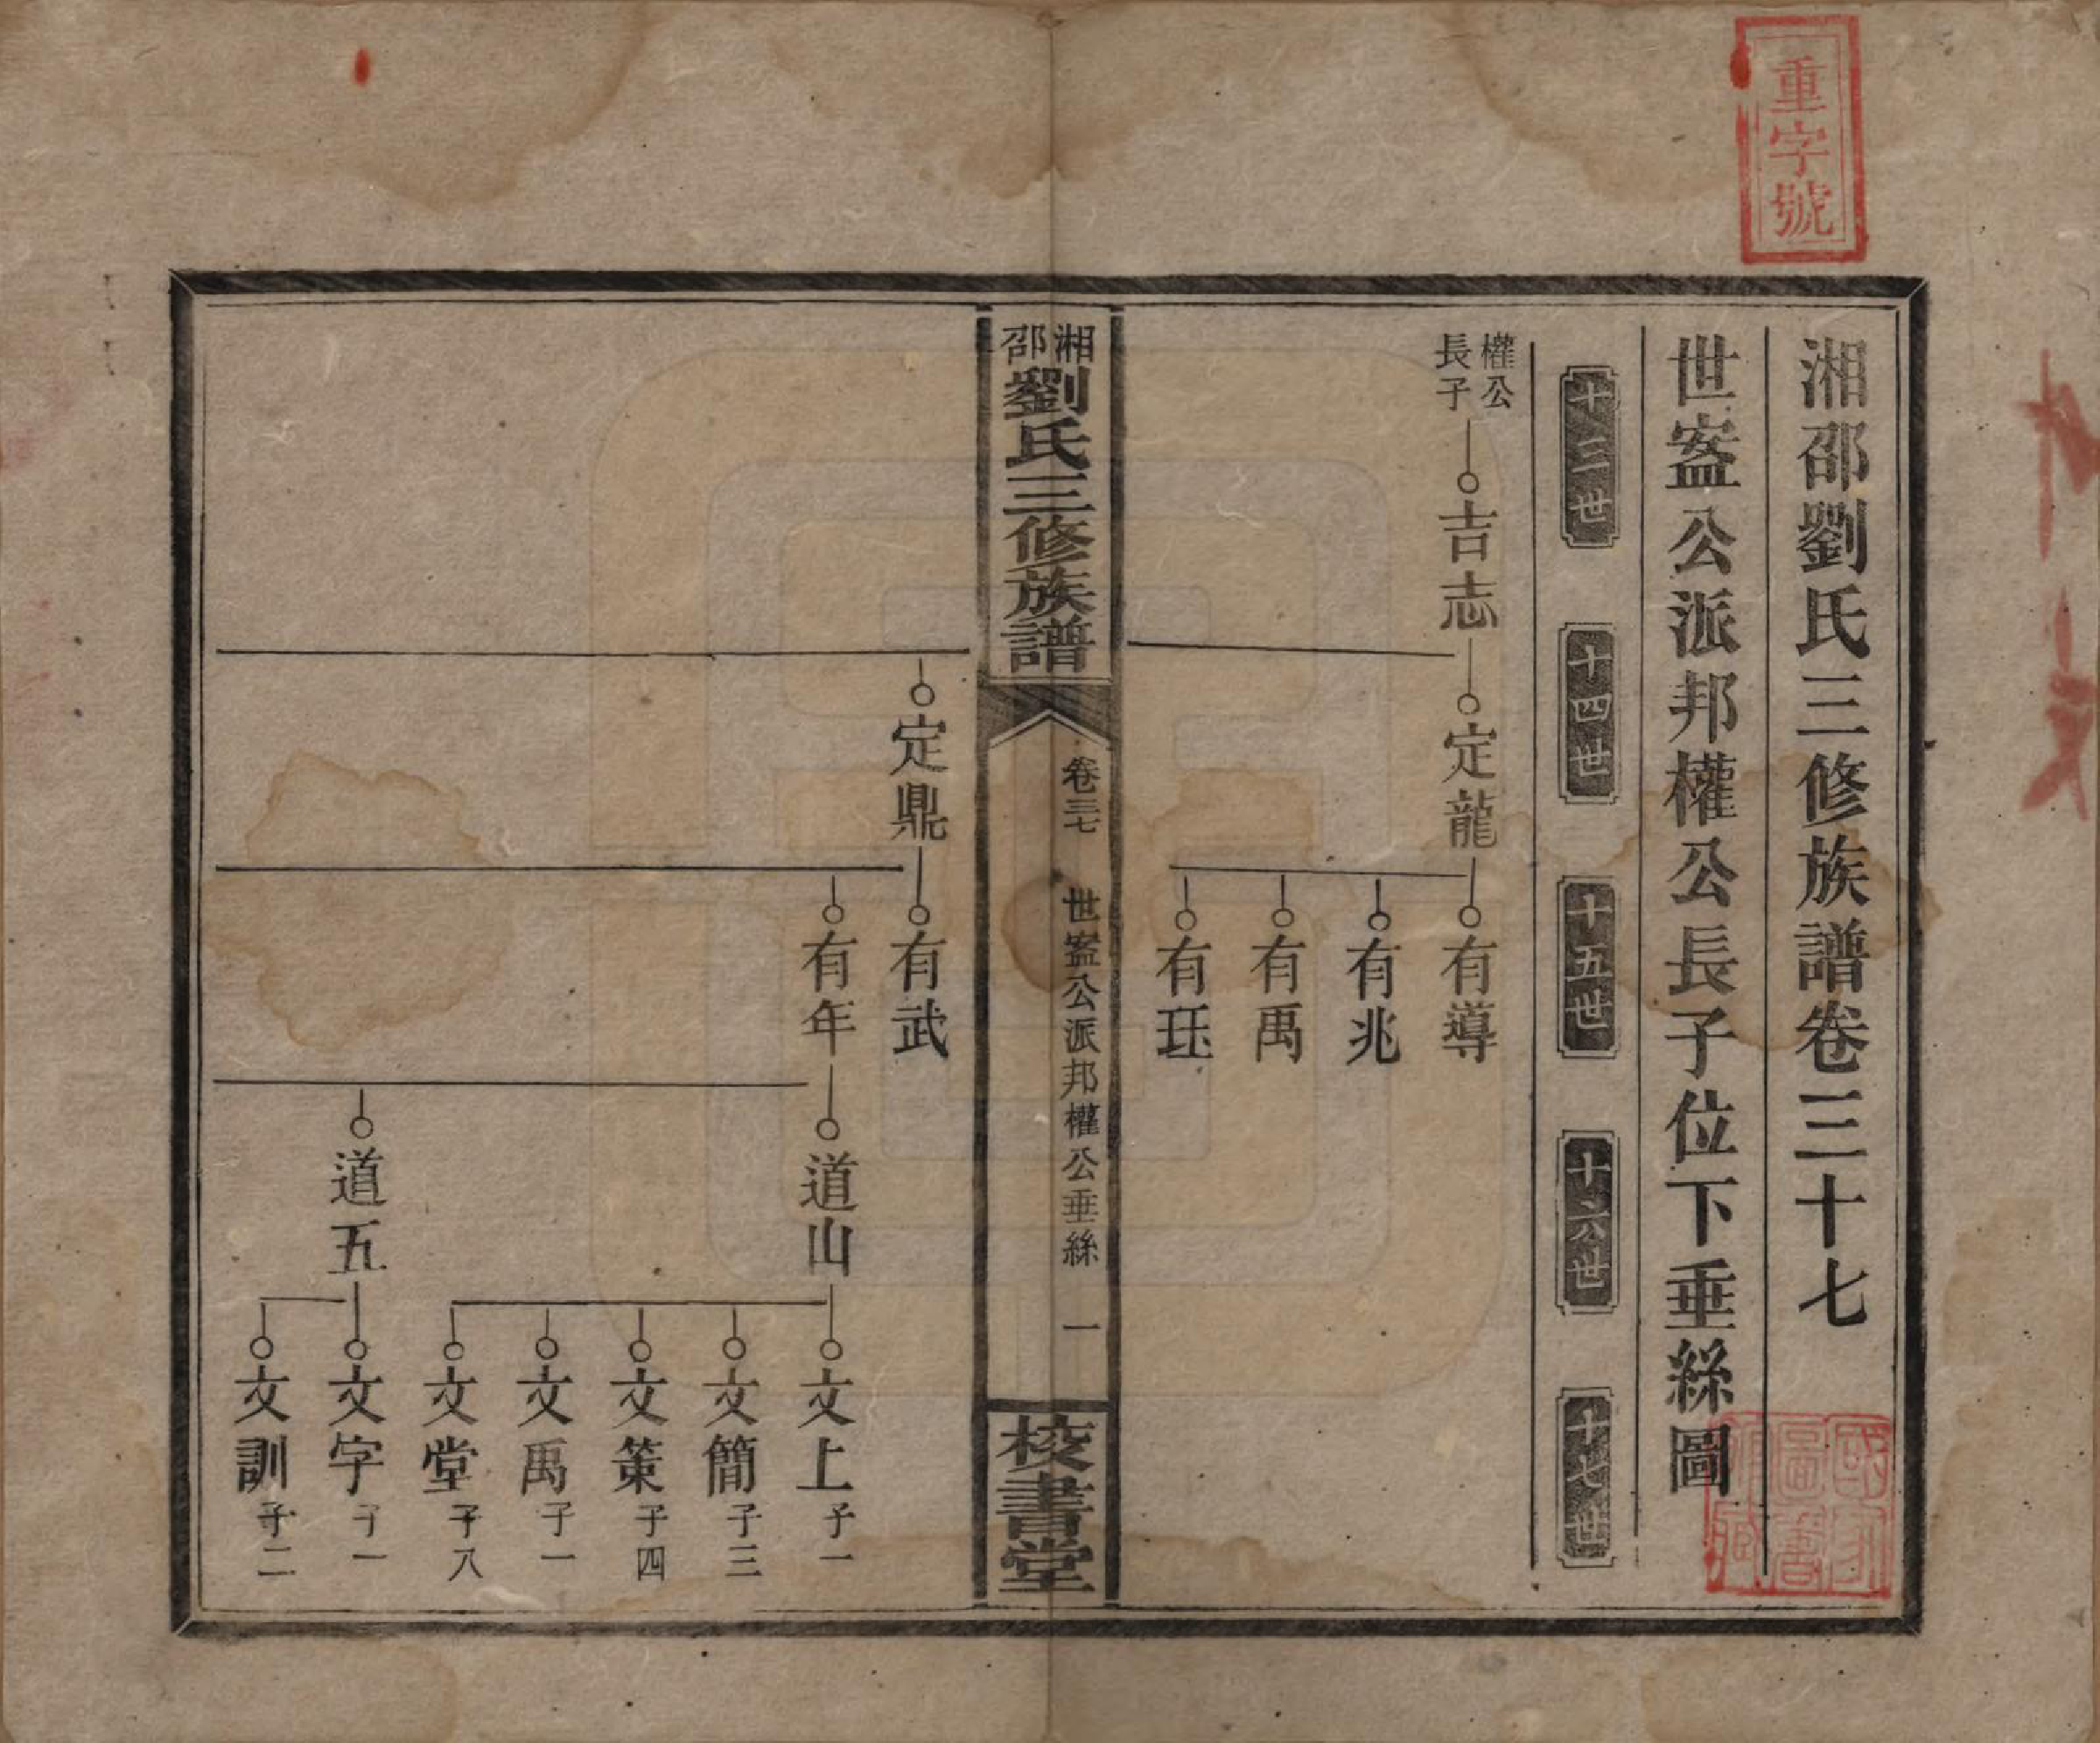 重字號
湘邵劉氏三修族譜卷三十七
世盇公派邦權公長子位下垂絲圖
十三世
十四世
十五世
十六世
十七世
權公
長子
吉志
定龍
有導
有兆
有禹
有玨
湘邵劉氏三修族譜
卷三七
世盇公派邦權公垂絲
一
校書堂
定鼎
有武
有年
道山
文上 子一
文簡 子三
文策 子四
文禹 子一
文堂 子八
道五
文字 子一
文訓 子二